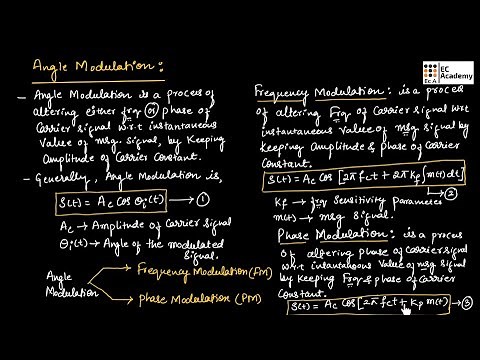 Angle Modulation :
- Angle Modulation is a process of
altering either frq (or) phase of
Carrier signal w.r.t instantaneous
Value of msg. signal, by keeping
Amplitude of Carrier Constant.
- Generally, Angle Modulation is,
S(t) = Ac cos θi(t) → ①
Ac → Amplitude of Carrier signal
θi(t) → Angle of the modulated
signal.
Angle
Modulation
Frequency Modulation (FM)
Phase Modulation (PM)
EC
Academy
EC A
Frequency Modulation : is a process
of altering Frq of Carrier signal wrt
instantaneous Value of msg signal by
keeping Amplitude & phase of Carrier
Constant.
S(t) = Ac cos [2π fct + 2π Kf ∫m(t)dt]
→ ②
Kf → frq Sensitivity parameter
m(t) → msg signal.
Phase Modulation : is a process
of altering phase of Carrier signal
w.r.t instantaneous Value of msg signal
by keeping Frq & phase of Carrier
Constant.
S(t) = Ac cos [2π fct + Kp m(t)] → ③